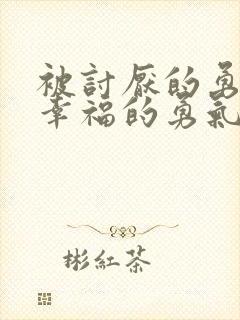 被討厭的勇
幸福的勇氣
彬紅茶